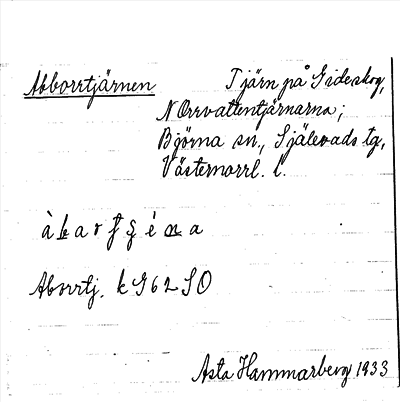 Abborrtjärnen Tjärn på Gideskog,
N Orrvattentjärnarna;
Björna sn., Själevads tg,
Västernorrl. l.
Aborrtj. k G62 SO
Asta Hammarberg 1933